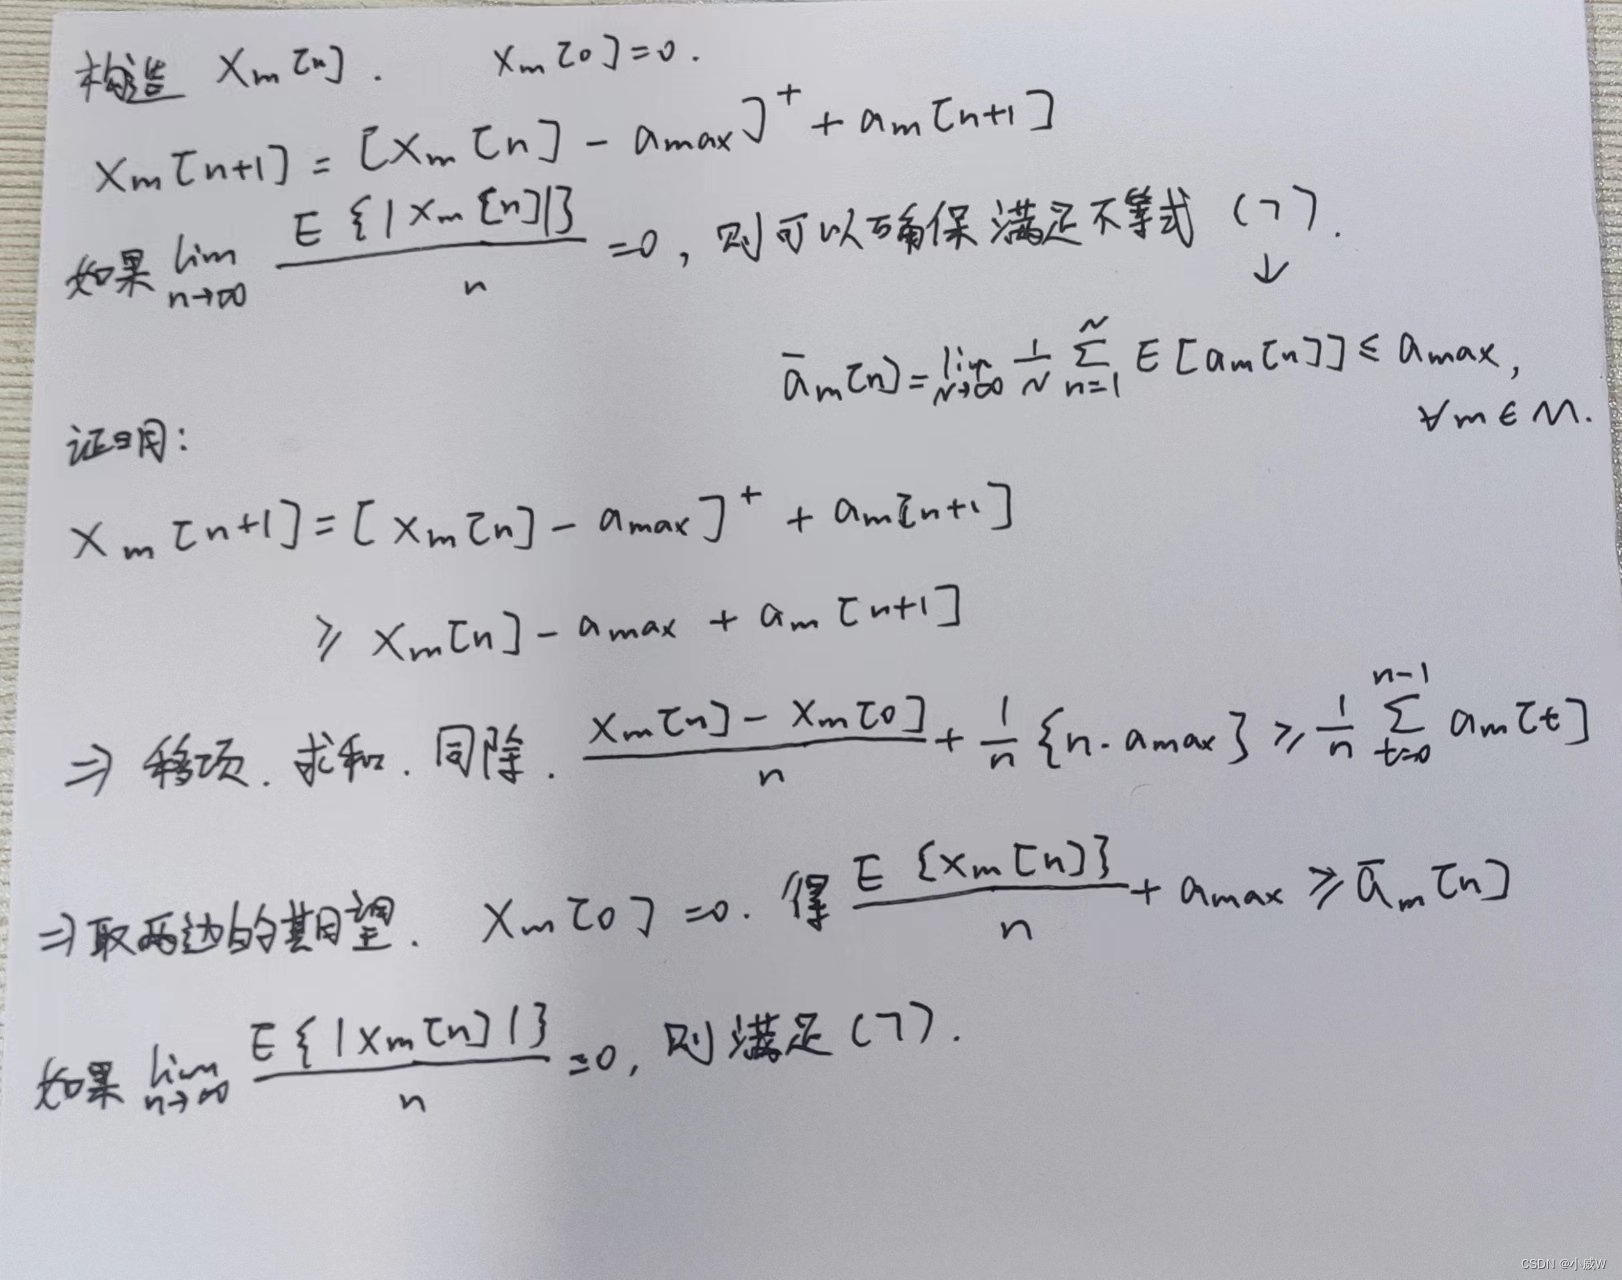 构造 Xm[n]. Xm[0]=0.
Xm[n+1] = [Xm[n] - amax]⁺ + am[n+1]
如果 lim n→∞ E{|Xm[n]|} / n =0, 则可以确保满足不等式 (7).
↓
ām[n] = lim N→∞ 1/N ∑ n=1 N E[am[n]] ≤ amax,
∀m∈M.
证明:
Xm[n+1] = [Xm[n] - amax]⁺ + am[n+1]
≥ Xm[n] - amax + am[n+1]
⇒ 移项. 求和. 同除. (Xm[n] - Xm[0]) / n + 1/n {n·amax} ≥ 1/n ∑ t=0 n-1 am[t]
⇒取两边的期望. Xm[0]=0. 得 E{Xm[n]} / n + amax ≥ ām[n]
如果 lim n→∞ E{|Xm[n]|} / n =0, 则满足(7).
CSDN @小威W